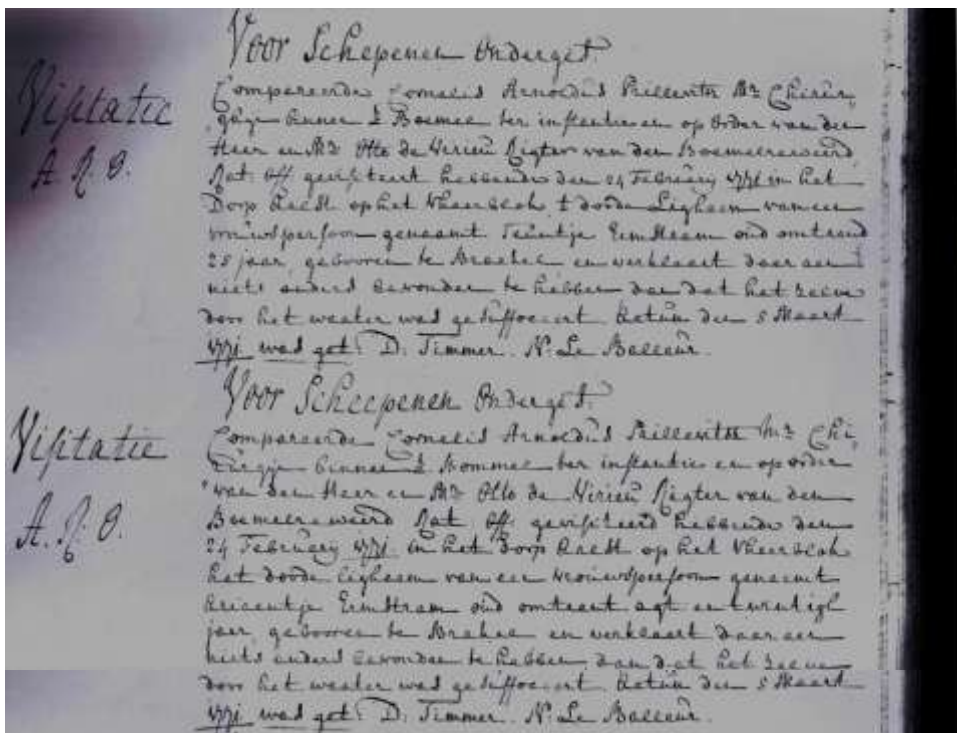 Voor Schepenen Onderget
Visitatie
A. R. O.
Compareerde Cornelis Arnoldus Pillevitse Mr Chirur,
gijn binnen Boemel ter instantie en op order van den
Heer en Mr Otto de Virieu Rigter van den Boemelrewaerd
Rat: Off: gevisiteert hebbende den 24 February 1771 in het
Dorp op het t doode Ligheem van een
vrouwspersoon genaamt Teuntje Ermstram oud omtrend
28 jaar, gebooren te Brakel en verklaert daar aen
niets anders bevonden te hebben dan dat het zeeve
door het waater was gesuffoceert. Actum den 5 Maart
1771 was get: D: Timmer. N: Le Balleur.
Voor Scheepenen Onderget.
Visitatie
A. R. O.
Compareerde Cornelis Arnoldus Pillevitse Mr Chi,
rurgijn binnen Bommel ter instantie en op order
van den Heer en Mr Otto de Virieu Rigter van den
Boemelrewaerd Rat: Off: gevisiteerd hebbende den
24 February 1771 in het Dorp op het
het doode ligheem van een vrouwspersoon genaemt
Ermstram oud omtrent agt en twintigh
jaer, gebooren te Brakel en verklaert daar aen
niets anders bevonden te hebben, dan dat het zeeve
door het waater was gesuffoceert. Actum den 5 Maart
1771 was get: D: Timmer. N: Le Balleur.